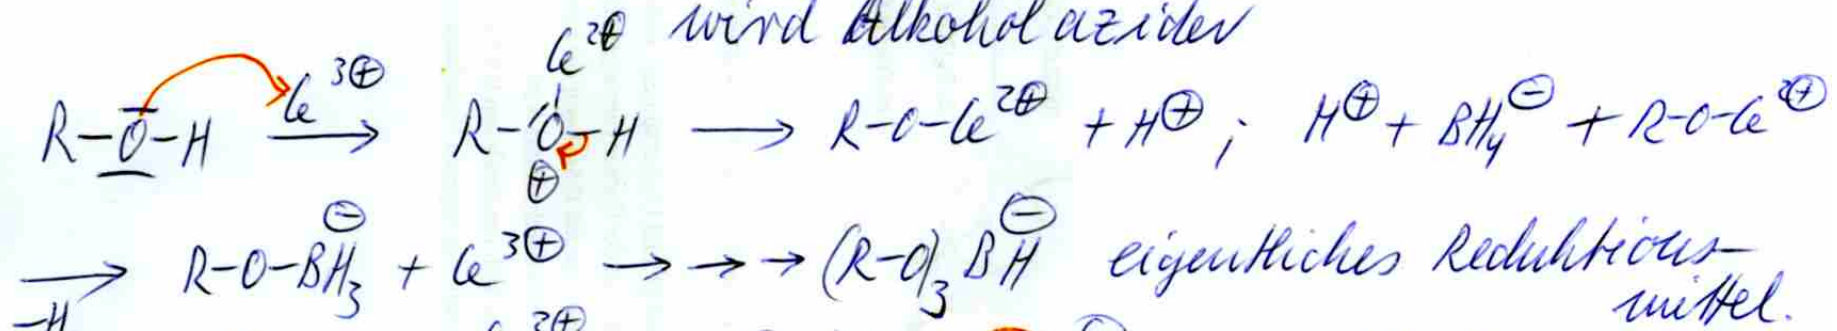 wird Alkohol azider
R-O-H Ce³⊕ → R-O-H ⊕ Ce²⊕ → R-O-Ce²⊕ + H⊕ ; H⊕ + BH₄⊖ + R-O-Ce²⊕
→ R-O-BH₃⊖ + Ce³⊕ → → → (R-O)₃BH⊖ eigentliches Reduktions-
-H mittel.
3⊕